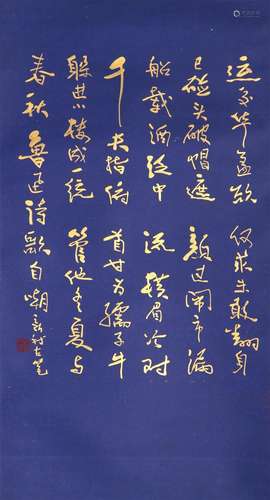 运交华盖欲何求未敢翻身
已碰头破帽遮颜过闹市漏
船载酒泛中流横眉冷对
千夫指俯首甘为孺子牛
躲进小楼成一统管他冬夏与
春秋鲁迅诗歌自嘲